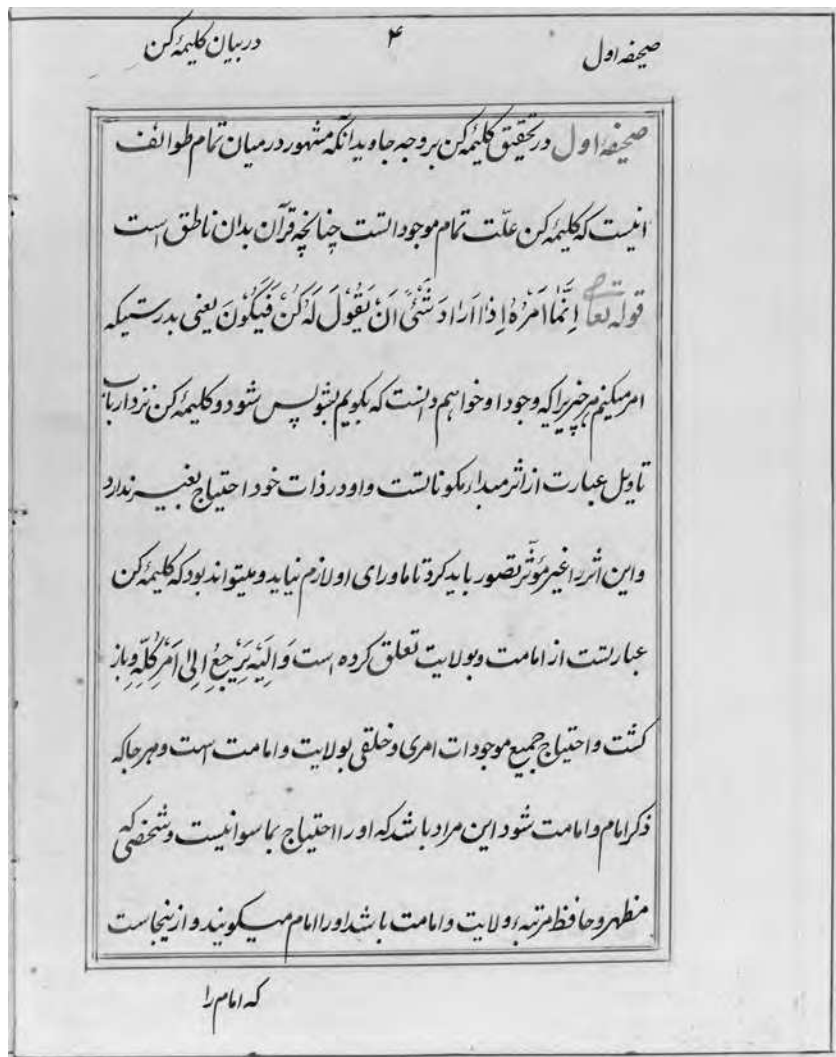 صحیفه اول ۴ در بیان کلیمهٔ کن
صحیفهٔ اول در تحقیق کلیمهٔ کن بر وجه جاوید آنکه مشهور در میان تمام طوائف
اینست که کلیمهٔ کن علّت تمام موجوداتست چنانچه قرآن بدان ناطق است
قوله تعالی إِنَّمَا اَمْرُهُ إِذَا اَرَادَ شَیْئًا اَنْ یَقُولَ لَهُ کُنْ فَیَکُونَ یعنی بدرستیکه
امر میکنیم هر چیزیرا که وجود او خواهم دانست که بکویم بشو پس شود و کلیمهٔ کن نزد ارباب
تاویل عبارت از اثر مبدار مکوناتست و او در ذات خود احتیاج بغیر ندارد
و این اثر را غیر مؤثّر تصور باید کرد تا ماورای او لازم نیاید و میتواند بود که کلیمهٔ کن
عبارتست از امامت و بولایت تعلق کرده است وَ اِلَیْهِ یَرْجِعُ اِلیٰ اَمْرِ کُلِّهِ و باز
کشت و احتیاج جمیع موجودات امری و خلقی بولایت و امامت است و هر جا که
ذکر امام و امامت شود این مراد باشد که او را احتیاج بماسوا نیست و شخصی که
مظهر و حافظ مرتبهٔ ولایت و امامت باشد او را امام میکویند و از ینجاست
که امام را